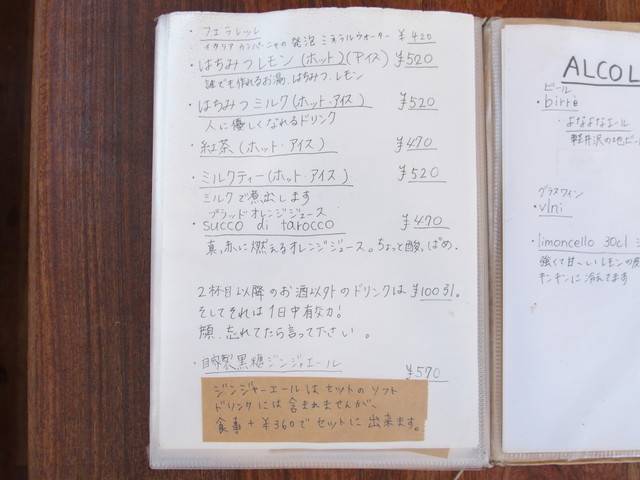 ・フェラレッレ
イタリア カンパーニャの発泡ミネラルウォーター ¥420
・はちみつレモン(ホット)(アイス) ¥520
誰でも作れるお湯、はちみつ、レモン
・はちみつミルク(ホット・アイス) ¥520
人に優しくなれるドリンク
・紅茶(ホット・アイス) ¥470
・ミルクティー(ホット・アイス) ¥520
ミルクで煮出します
ブラッドオレンジジュース
・succo di tarocco ¥470
真っ赤に燃えるオレンジジュース。ちょっと酸っぱめ。
2杯目以降のお酒以外のドリンクは¥100引。
そしてそれは1日中有効!
顔、忘れてたら言って下さい。
・自家製黒糖ジンジャエール ¥570
ジンジャーエールはセットのソフト
ドリンクには含まれませんが、
食事+¥360でセットに出来ます。
ALCOL
ビール
・birre
・よなよなエール
軽井沢の地ビー
グラスワイン
・vini
・limoncello 30cl
強くて甘〜いレモンの皮
キンキンに冷えてます